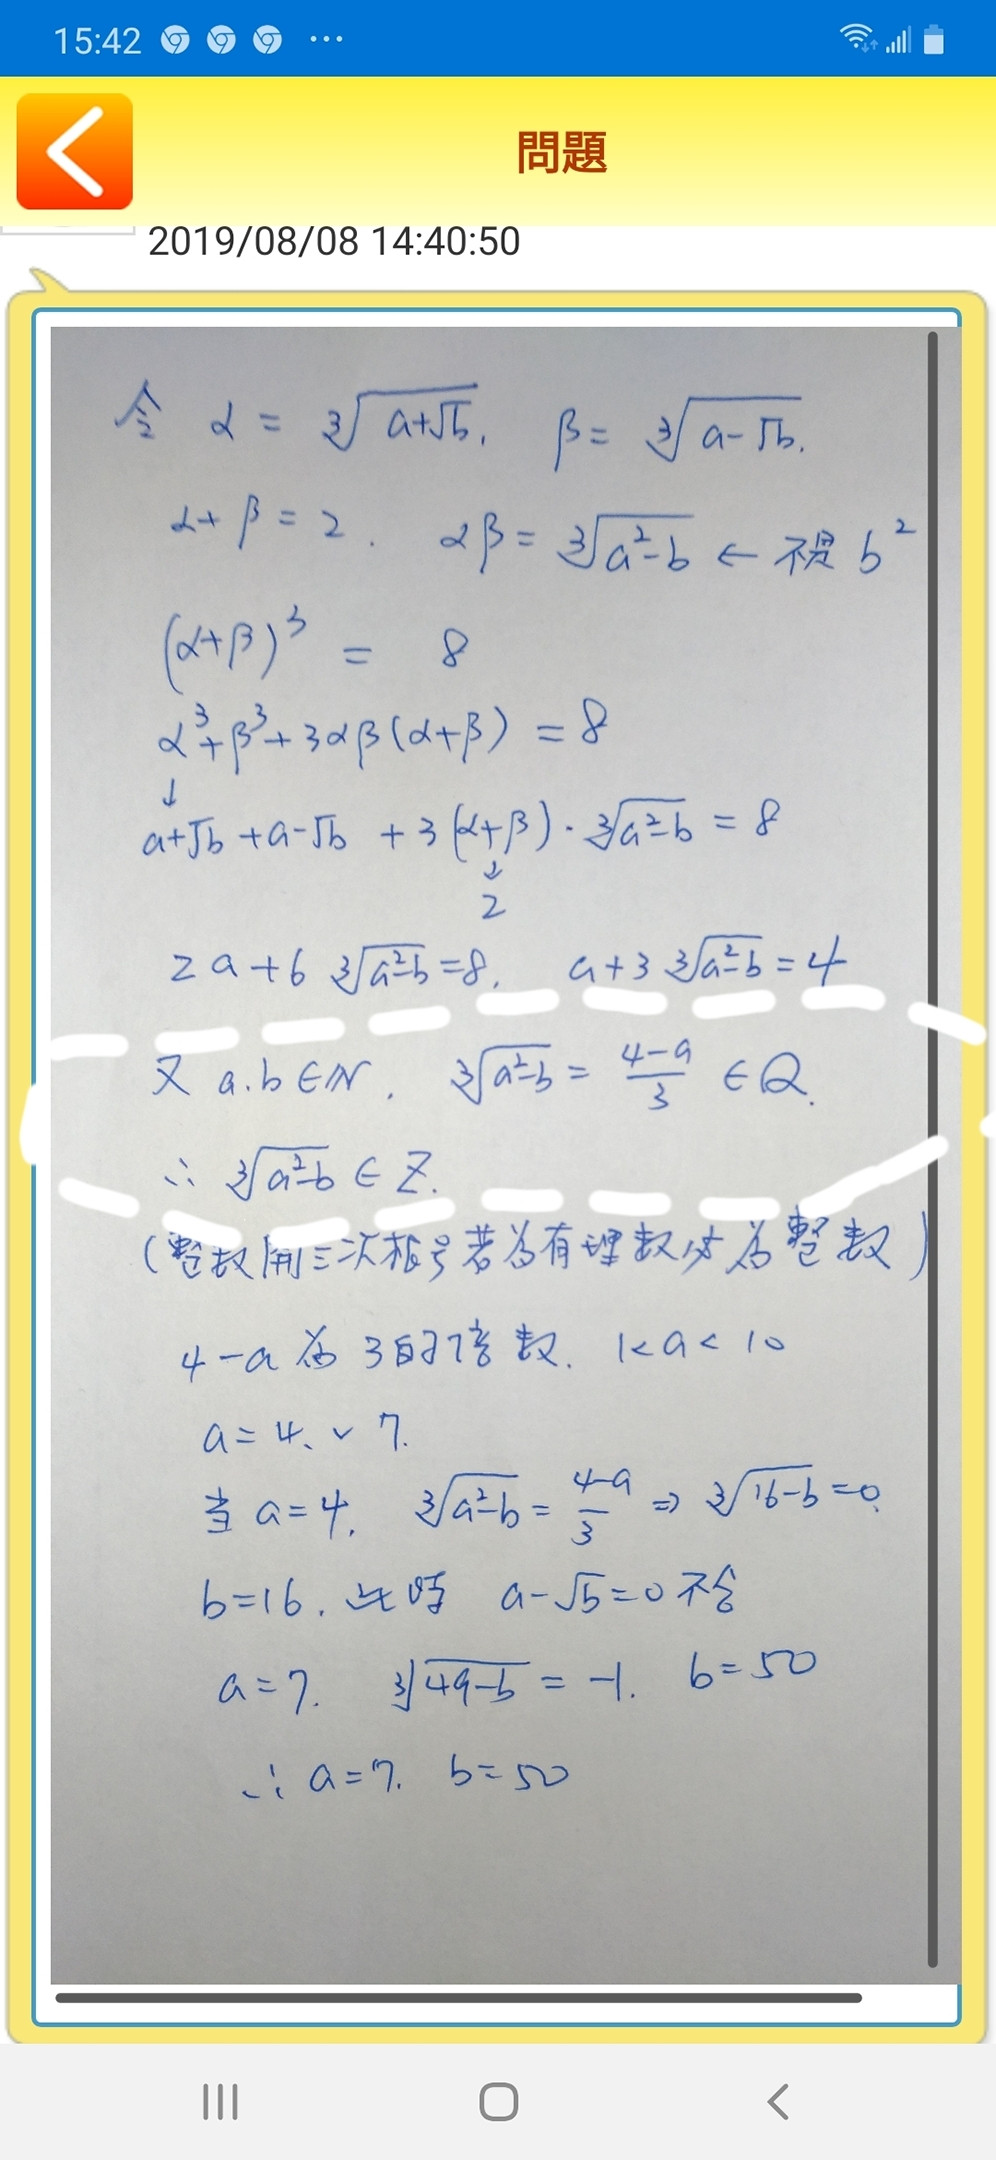 15:42
問題
2019/08/08 14:40:50
令 α = ∛(a+√b), β = ∛(a-√b).
α+β = 2. αβ = ∛(a²-b) ← 不是 b²
(α+β)³ = 8
α³+β³+3αβ(α+β) = 8
↓
a+√b +a-√b +3(α+β)·∛(a²-b) = 8
↓
2
2a+6∛(a²-b) =8, a+3∛(a²-b) =4
又 a.b∈N, ∛(a²-b) = (4-a)/3 ∈Q.
∴ ∛(a²-b) ∈ Z.
(整數開三次根号若為有理數必為整數)
4-a 為 3的倍數. 1<a<10
a=4, ∨ 7.
当 a=4, ∛(a²-b) = (4-a)/3 ⇒ ∛(16-b) =0.
b=16, 此時 a-√b=0 不合
a=7. ∛(49-b) = -1. b=50
∴ a=7. b=50